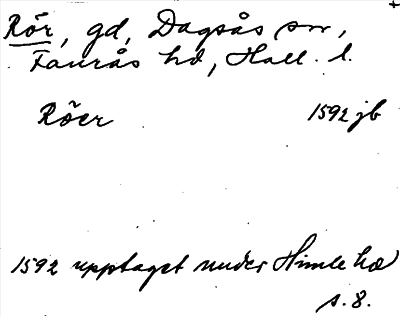 Rör, gd, Dagsås sn,
Faurås hd, Hall. l.
Röer 1592 jb
1592 upptaget under Himle hd
s. 8.